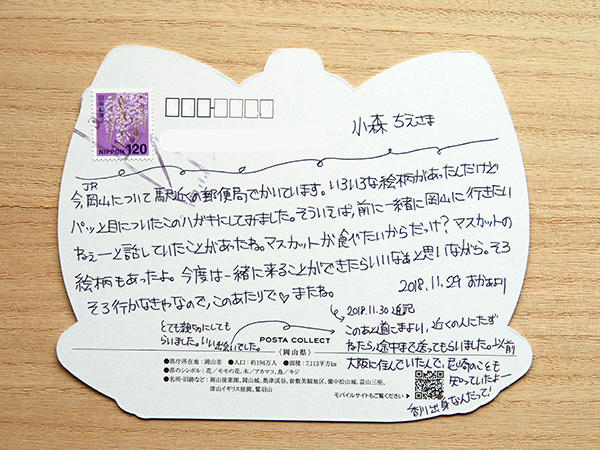 日本郵便
NIPPON 120
小森 ちえさま
JR
今、岡山について駅近くの郵便局でかいています。いろいろな絵柄があったんだけど
パッと目についたこのハガキにしてみました。そういえば、前に一緒に岡山に行きたい
ねぇーと話していたことがあったね。マスカットが食べたいからだっけ?マスカットの
絵柄もあったよ。今度は一緒に来ることができたらいいなぁと思いながら。そろ
そろ行かなきゃなので、このあたりで♡またね。
2018.11.29 おかあより
2018.11.30 追記
このあと道にまよい、近くの人にたず
ねたら、途中まで送ってもらいました。以前
大阪に住んでいたんで、尼崎のことも
知っていたよー
香川出身なんだって!
とても親切にしても
らいました。いい出会いでした。
POSTA COLLECT
〈岡山県〉
●県庁所在地:岡山市 ●人口:約194万人 ●面積:7,113平方km
●県のシンボル:花/モモの花、木/アカマツ、鳥/キジ
●名所・旧跡など:岡山後楽園、岡山城、奥津渓谷、倉敷美観地区、備中松山城、蒜山三座、
深山イギリス庭園、鷲羽山
モバイルサイトもご覧ください▶